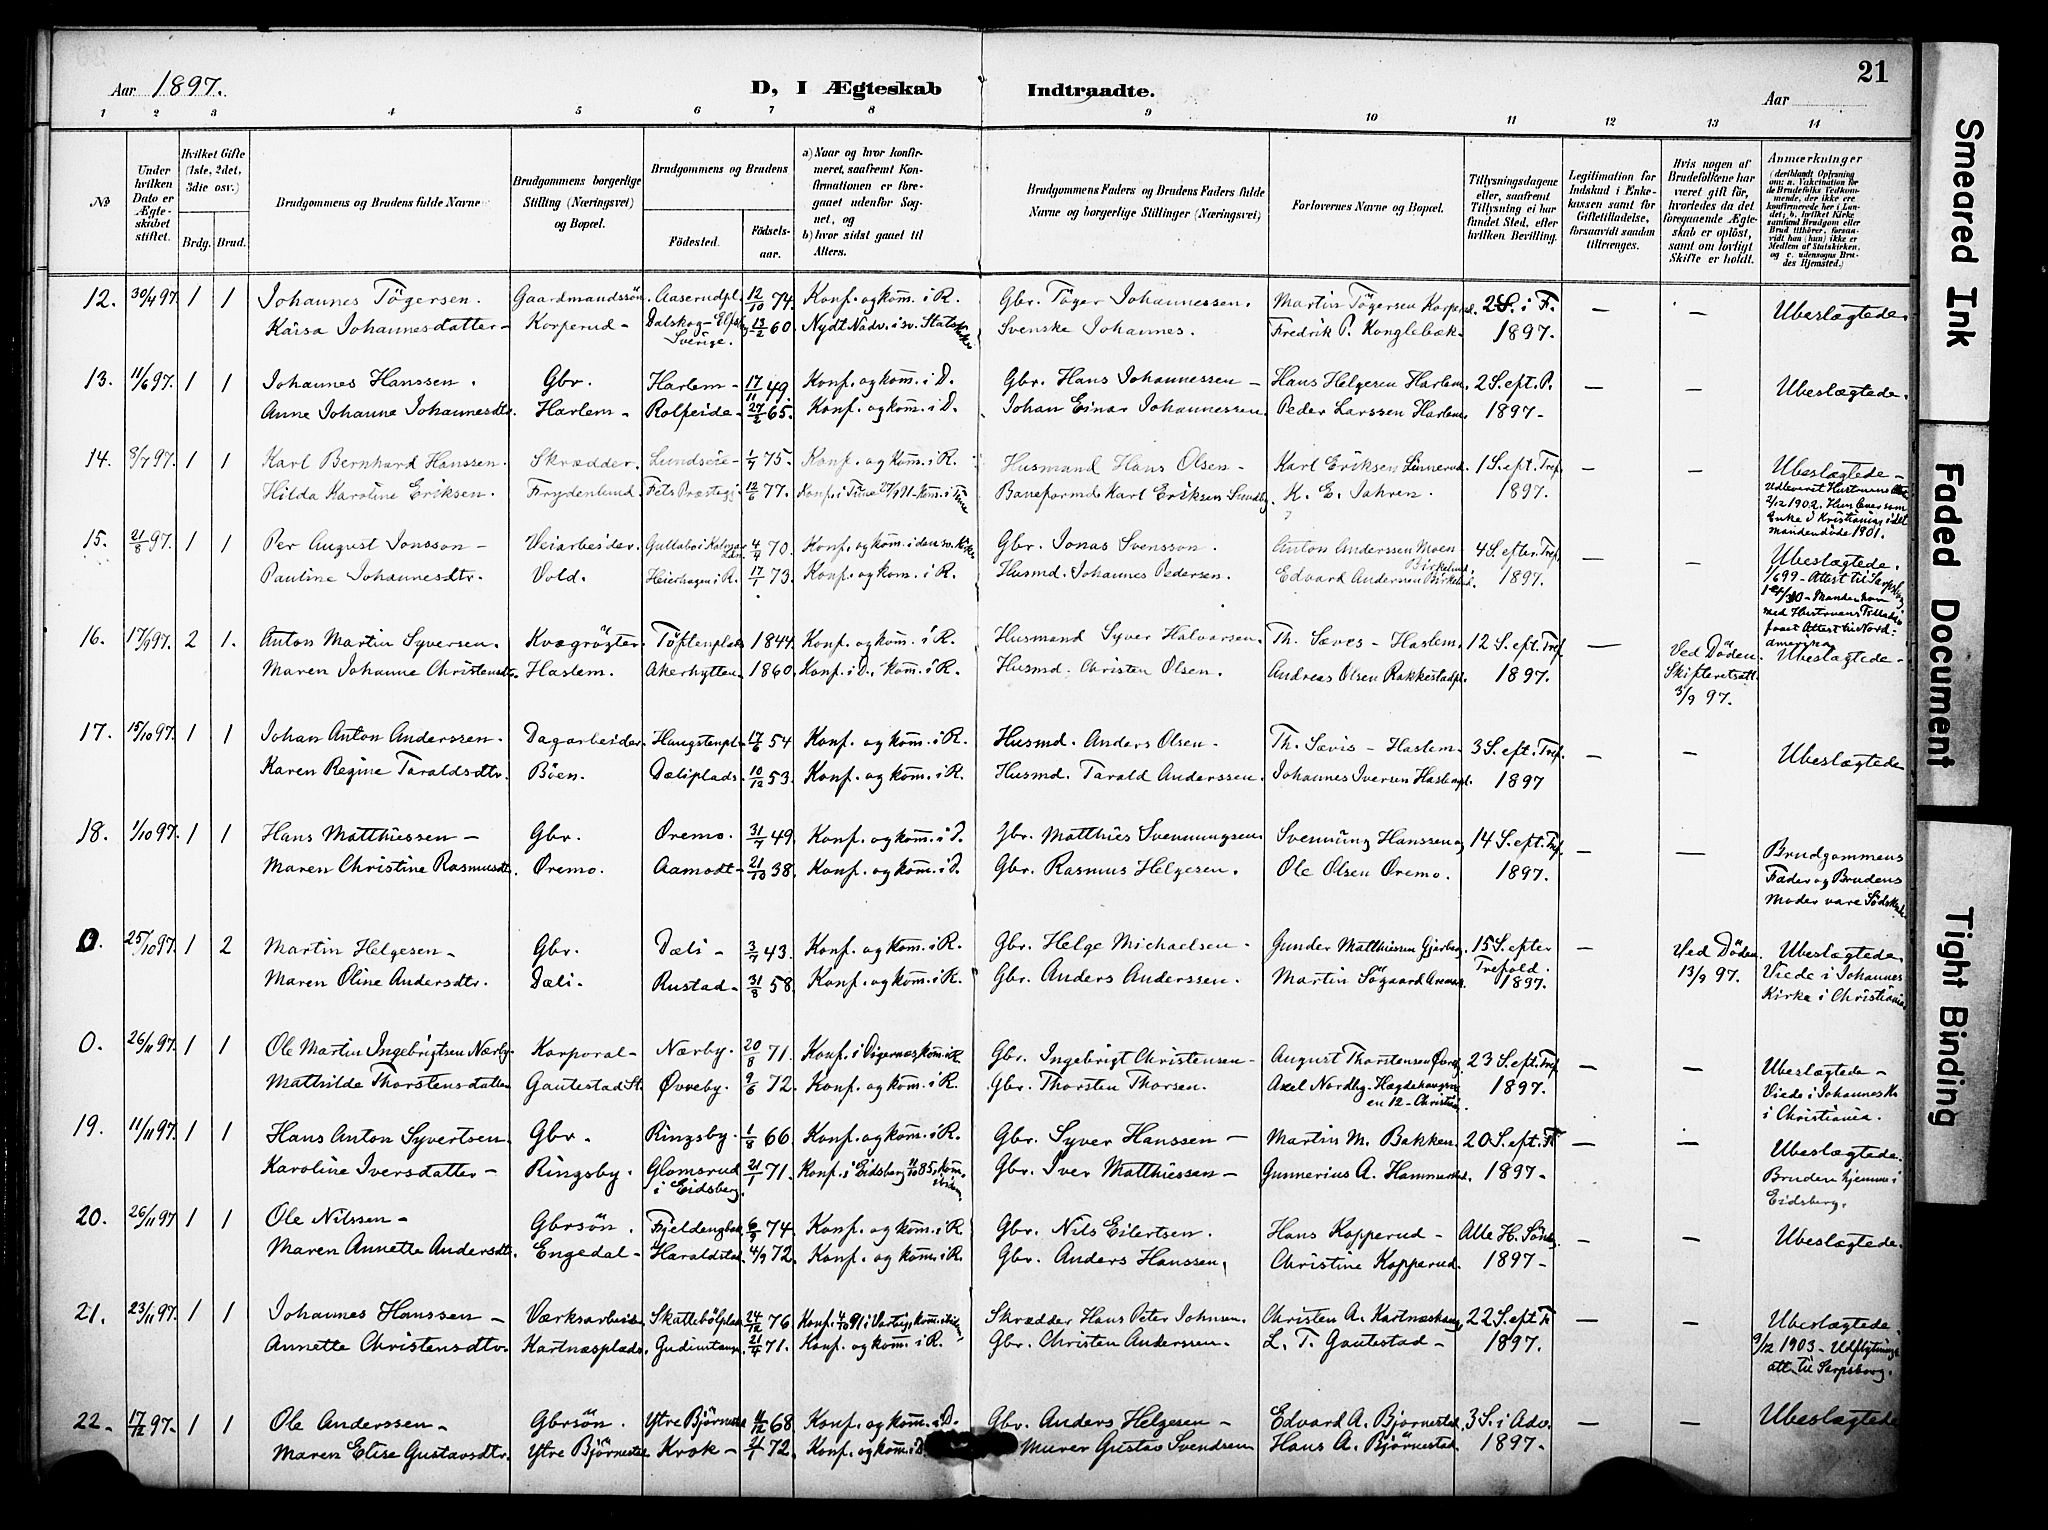 Aar 1897.
D, I Ægteskab Indtraadte.
21
Aar
1 2 3 4 5 6 7 8 9 10 11 12 13 14
No
Under hvilken Dato er Ægteskabet stiftet.
Hvilket Gifte (1ste, 2det, 3die osv.)
Brdg. Brud.
Brudgommens og Brudens fulde Navne
Brudgommens borgerlige Stilling (Næringsvei) og Bopæl.
Brudgommens og Brudens
Födested. Födselsaar.
a) Naar og hvor konfirmeret, saafremt Konfirmationen er foregaaet udenfor Sognet, og
b) hvor sidst gaaet til Alters.
Brudgommens Faders og Brudens Faders fulde Navne og borgerlige Stillinger (Næringsvei)
Forlovernes Navne og Bopæl.
Tillysningsdagene eller, saafremt Tillysning ei har fundet Sted, efter hvilken Bevilling.
Legitimation for Indskud i Enkekassen samt for Giftetilladelse, forsaavidt saadan tiltrænges.
Hvis nogen af Brudefolkene har været gift før, hvorledes da det foregaaende Ægteskab er oplöst, samt om lovligt Skifte er holdt.
Anmærkninger (deriblandt Oplysning om: a. Vakcination for de Brudefolks Vedkommende, der ikke ere konfirmerede her i Landet; b. hvilket Kirkesamfund Brudgom eller Brud tilhörer, forsaavidt han (hun) ikke er Medlem af Statskirken, og c. udensogns Brudes Hjemsted.)
12. 30/4 97. 1 1 Johannes Tögersen. Gaardmandssön. Aaserudpl. 12/10 74. Konf. og kom. i R. Gbr. Töger Johannessen. Martin Tögersen Korperud. 2 S. i F. — — Ubeslægtede.
Kaisa Johannesdatter – Korperud – Dalskog – Sverige. 13/2 60. Nydt Nadv. i sv. Statskirke Svenske Johannes. Fredrik P. Konglebæk. 1897.
13. 11/6 97. 1 1 Johannes Hanssen. Gbr. Harlem – 17/11 49. Konf. og kom. i D. Gbr. Hans Johannessen – Hans Helgesen Harlem. 2 S. eft. P. — — Ubeslægtede.
Anne Johanne Johannesdtr. Harlem – Rolfseide – 27/2 65. Konf. og kom. i D. Johan Einar Johannessen. Peder Larssen Harlem. 1897 –
14. 8/7 97. 1 1 Karl Bernhard Hanssen. Skrædder. Lundseie – 1/7 75. Konf. og kom. i R. Husmand Hans Olsen – Karl Eriksen Linnerud. 1 S. eft. Tref. — — Ubeslægtede –
Hilda Karoline Eriksen. Frydenlund. Fets Præstegj. 12/6 77. Konf. i Tune – kom. i Tune Baneformd. Karl Eriksen Sundby. K. E. Jahren. 1897. Udleveret Hustruens
2/12 1902. Hun lever som Enke i Kristiania, idet manden döde 1901.
15. 21/8 97. 1 1 Per August Jonsson – Veiarbeider. Gullabo i Kalmar 4/9 70. Konf. og kom. i den sv. Kirke Gbr. Jonas Svensson. Anton Anderssen Moen Birkelund. 4 S. efter Tref. — — Ubeslægtede.
Pauline Johannesdtr. Vold. Heierhagen i R. 17/1 73. Konf. og kom. i R. Husmd. Johannes Pedersen. Edvard Andersen Birkelund. 1897. 1/6 99 – Attest til Sarpsborg. Manden har med Hustruens Tilladelse faaet Attest til Nordamerika
16. 17/9 97. 2 1. Anton Martin Syversen. Kvægrögter. Töftenplads 1844. Konf. og kom. i R. Husmand Syver Halvorsen. Th. Sæves – Haslem. 12 S. eft. Tref. — Ved Döden. Ubeslægtede –
Maren Johanne Christensdtr. Haslem. Akerhytten. 1860. Konf. i D., kom. i R. Husmd. Christen Olsen. Andreas Olsen Rakkestadpl. 1897. Skifteretsatt. 3/9 97.
17. 15/10 97. 1 1 Johan Anton Anderssen. Dagarbeider. Haugstenpl. 17/6 54 Konf. og kom. i R. Husmd. Anders Olsen – Th. Sævis – Haslem. 3 S. eft. Tref. — — Ubeslægtede
Karen Regine Taraldsdtr. Böen. Dæliplads. 10/12 53. Konf. og kom. i R. Husmd. Tarald Anderssen. Johannes Iversen Haslempl. 1897
18. 1/10 97. 1 1 Hans Matthiessen – Gbr. Øremo. 31/7 49. Konf. og kom. i D. Gbr. Matthies Svenningsen. Svenning Hanssen og 14 S. eft. Tref. — — Brudgommens
Maren Christine Rasmusdtr. Øremo. Aamodt – 21/10 38. Konf. og kom. i D. Gbr. Rasmus Helgesen. Ole Olsen Øremo. 1897. Fader og Brudens Moder vare Södskende.
0. 25/10 97. 1 2 Martin Helgesen – Gbr. Dæli – 3/7 43. Konf. og kom. i R. Gbr. Helge Michaelsen – Gunder Matthiessen Gjerberg. 15 S. efter — Ved Döden Ubeslægtede.
Maren Oline Andersdtr. Dæli – Rustad – 31/8 58. Konf. og kom. i R. Gbr. Anders Anderssen. Martin Sögaard Trefold. 1897. 13/9 97. Viede i Johannes Kirke i Christiania
0. 26/11 97. 1 1 Ole Martin Ingebrigtsen Nærby. Korporal – Nærby. 20/8 71. Konf. i Digernæs, kom. i R. Gbr. Ingebrigt Christensen – August Thorstensen Øvreby. 23 S. eft. Tref — — Ubeslægtede –
Mathilde Thorstensdatter Gautestad St. Øvreby. 9/6 72. Konf. og kom. i R. Gbr. Thorsten Thorsen. Axel Nordby. Hægdehaugsveien 12 – Christia. 1897. Viede i Johannes K. i Christiania.
19. 11/11 97. 1 1 Hans Anton Syvertsen. Gbr. Ringsby. 1/8 66. Konf. og kom. i R. Gbr. Syver Hanssen – Martin M. Bakken. 20 S. eft. T. — — Ubeslægtede.
Karoline Iversdatter – Ringsby. Glomsrud i Eidsberg. 21/1 71. Konf. i Eidsberg 11/10 85, kom. Gbr. Iver Matthiessen – Gunnerius A. Hammerstad. 1897 – Bruden hjemme i Eidsberg.
20. 26/11 97 1 1 Ole Nilssen – Gbrsön. Fjeldengbak 6/9 74. Konf. og kom. i R. Gbr. Nils Eilertsen. Hans Kopperud – Alle H. Sönd. — — Ubeslægtede.
Maren Annette Andersdtr. Engedal – Haraldstad. 4/9 72. Konf. og kom. i R. Gbr. Anders Hanssen. Christine Kopperud. 1897 –
21. 23/11 97. 1 1 Johannes Hanssen – Værksarbeider. Skattebölplads 24/12 76 Konf. 4/10 91 i Varteig, kom. Skrædder Hans Peter Johnsen. Christen A. Kartnæshaug. 22 S. eft. Tr. — — Ubeslægtede.
Annette Christensdtr. Kartnæsplads. 21/4 71. Konf. og kom. i R. Gbr. Christen Anderssen. L. T. Gautestad – 1897. 9/12 1903 – Udflytnings att. til Sarpsborg.
22. 17/12 97. 1 1 Ole Anderssen – Gbrsön. Ytre Björnestad 68. Konf. og kom. i D. Gbr. Anders Helgesen – Edvard A. Björnestad. 3 S. i Adv. — — Ubeslægtede
Maren Elise Gustavsdtr. Ytre Björnestad Krok – 72. Konf. og kom. i D. Murer Gustav Svendsen Hans A. Björnestad. 1897 –
Smeared Ink
Faded Document
Tight Binding